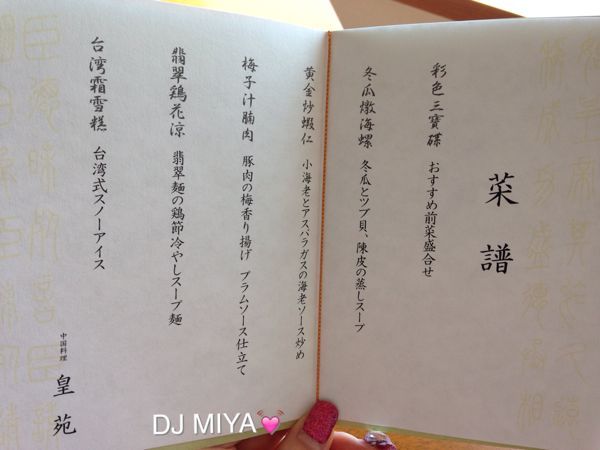 菜譜
彩色三寶碟 おすすめ前菜盛合せ
冬瓜燉海螺 冬瓜とツブ貝、陳皮の蒸しスープ
黄金炒蝦仁 小海老とアスパラガスの海老ソース炒め
梅子汁腩肉 豚肉の梅香り揚げ プラムソース仕立て
翡翠鶏花涼 翡翠麺の鶏節冷やしスープ麺
台湾霜雪糕 台湾式スノーアイス
中国料理 皇苑
DJ MIYA